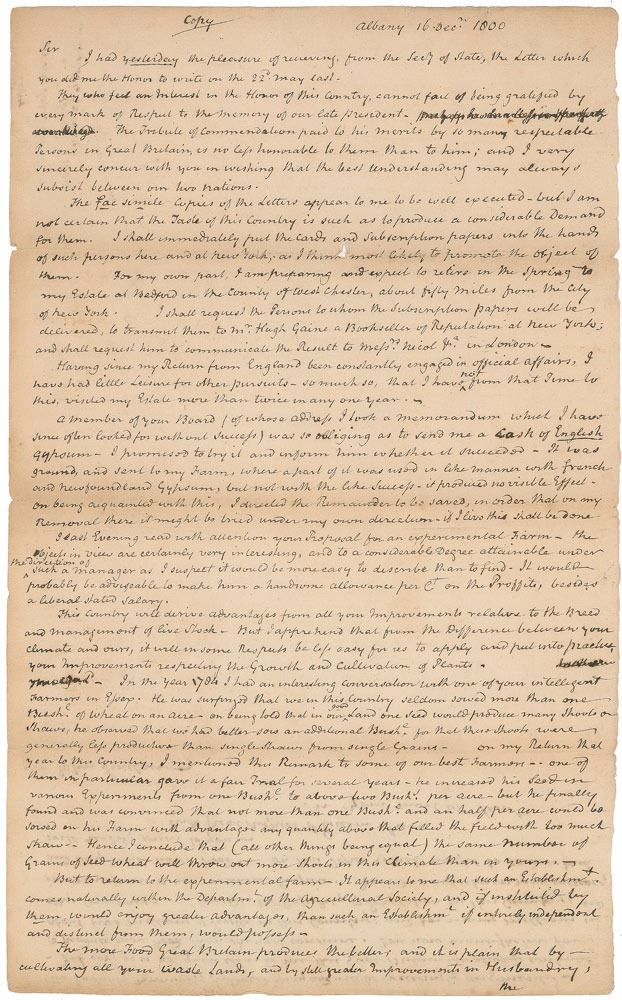 Copy
Albany 16 Decr. 1800
Sir
I had yesterday the pleasure of recieving, from the Secy of State, the Letter which
you did me the Honor to write on the 22d. may last.
They who feel an Interest in the Honor of this Country, cannot fail of being gratified by
every mark of Respect to the memory of our late president -
The Tribute of Commendation paid to his merits by so many respectable
Persons in Great Britain, is no less honorable to them than to him; and I very
sincerely concur with you in wishing that the best understanding may always
subsist between our two nations.
The fac simile Copies of the Letters appear to me to be well executed - but I am
not certain that the Taste of this Country is such as to produce a considerable Demand
for them. I shall immediately put the Cards and Subscription papers into the hands
of such persons here and at new York, as I think most likely to promote the object of
them. For my own part, I am preparing and expect to retire in the Spring to
my Estate at Bedford in the County of West Chester, about fifty miles from the City
of new York. I shall request the Persons to whom the Subscription papers will be
delivered, to transmit them to mr. Hugh Gaine a Bookseller of Reputation at new York;
and shall request him to communicate the Result to Messrs. Nicol &c. in London -
Having since my Return from England been constantly engaged in official affairs, I
have had little Leisure for other pursuits - so much so, that I have not from that Time to
this, visited my Estate more than twice in any one year. -
A member of your Board (of whose address I took a memorandum which I have
since often looked for without success) was so obliging as to send me a Cask of English
Gypsum - I promised to try it and inform him whether it succeeded - It was
ground, and sent to my Farm, where a part of it was used in like manner with French
and newfoundland Gypsum, but not with the like Success - it produced no visible Effect -
on being acquainted with this, I directed the Remainder to be saved, in order that on my
Removal there it might be tried under my own direction - if I live this shall be done
I last Evening read with attention your Proposal for an experimental Farm - the
objects in view are certainly very interesting, and to a considerable Degree attainable under
the direction of
such a manager as I suspect it would be more easy to describe than to find - It would
probably be adviseable to make him a handsome allowance per Ct. on the Proffits, besides
a liberal stated salary.
This Country will derive advantages from all your Improvements relative to the Breed
and management of live Stock - But I apprehend that from the Difference between your
climate and ours, it will in some Respects be less easy for us to apply and put into practice
your Improvements respecting the Growth and Cultivation of Plants.
In the year 1784 I had an interesting Conversation with one of your intelligent
Farmers in Essex. He was surprized that we in this Country seldom sowed more than one
Bushl. of wheat on an acre - on being told that in our Land one seed would produce many Shoots or
Straws, he observed that we had better sow an additional Bushl. for that those Shoots were
generally less productive than single Straws from single Grains - on my Return that
year to this Country, I mentioned this Remark to some of our best Farmers - one of
them in particular gave it a fair Trial for several years - he increased his Seed in
various Experiments from one Bushl. to above two Bushl. per acre - but he finally
found and was convinced that not more than one Bushl. and an half per acre could be
sowed on his Farm with advantage any quantity above that filled the field with too much
Straw - Hence I conclude that (all other things being equal) the same number of
Grains of Seed wheat will throw out more Shoots in this Climate than in yours. -
But to return to the experimental farm - It appears to me that such an Establishmt.
comes naturally within the Departmt. of the Agricultural Society, and if instituted by
them would enjoy greater advantages, than such an Establishmt. if entirely independent
and distinct from them, would possess -
The more Food Great Britain produces the better, and it is plain that by
cultivating all your waste Lands, and by still greater Improvements in Husbandry,
the